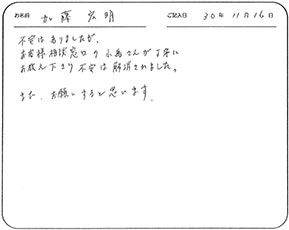 お名前 加藤宏明 ご記入日 30年11月16日
不安はありましたが、
お客様相談窓口の小島さんが丁寧に
お教え下さり不安は解消されました。
また、お願いすると思います。